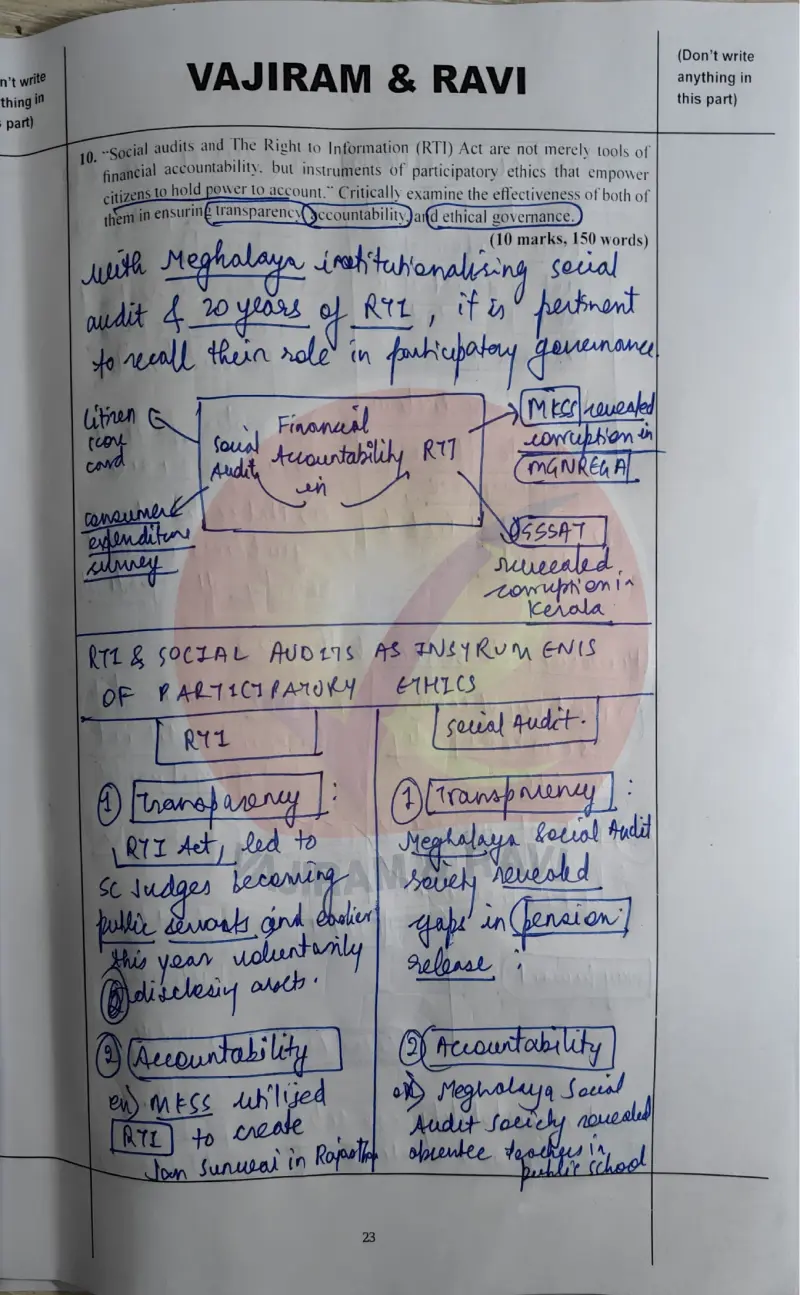 n't write
thing in
s part)
VAJIRAM & RAVI
(Don't write
anything in
this part)
10. "Social audits and The Right to Information (RTI) Act are not merely tools of
financial accountability, but instruments of participatory ethics that empower
citizens to hold power to account." Critically examine the effectiveness of both of
them in ensuring transparency, accountability, and ethical governance.
(10 marks, 150 words)
with Meghalaya institutionalising social
audit & 20 years of RTI, it is pertinent
to recall their role in participatory governance.
Citizen
score
card
consumer
expenditure
survey
Financial
Social Accountability RTI
Audit in
MKSS revealed
corruption in
MGNREGA
revealed
corruption in
Kerala
RTI & SOCIAL AUDITS AS INSYRUMENTS
OF PARTICIPATORY ETHICS
RTI
① Transparency :
RTI Act, led to
SC Judges becoming
public servants and earlier
this year voluntarily
disclosing assets.
② Accountability
MKSS utilised
RTI to create
Jan Sunwai in Rajasthan
Social Audit.
① Transparency :
Meghalaya Social Audit
Society revealed
gaps in pension
release
② Accountability
Meghalaya Social
Audit Society revealed
absentee teachers in
public school
23